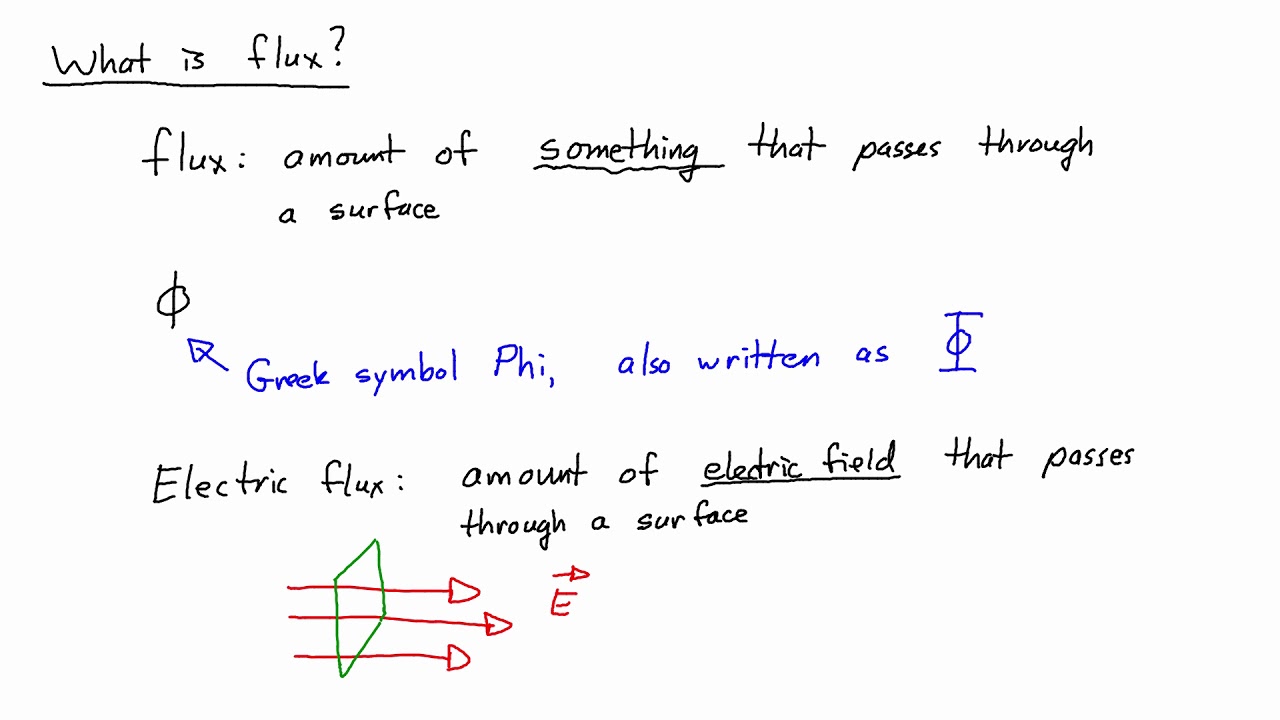 What is flux?
flux: amount of something that passes through
a surface
ϕ
Greek symbol Phi, also written as Φ
Electric flux: amount of electric field that passes
through a surface
E